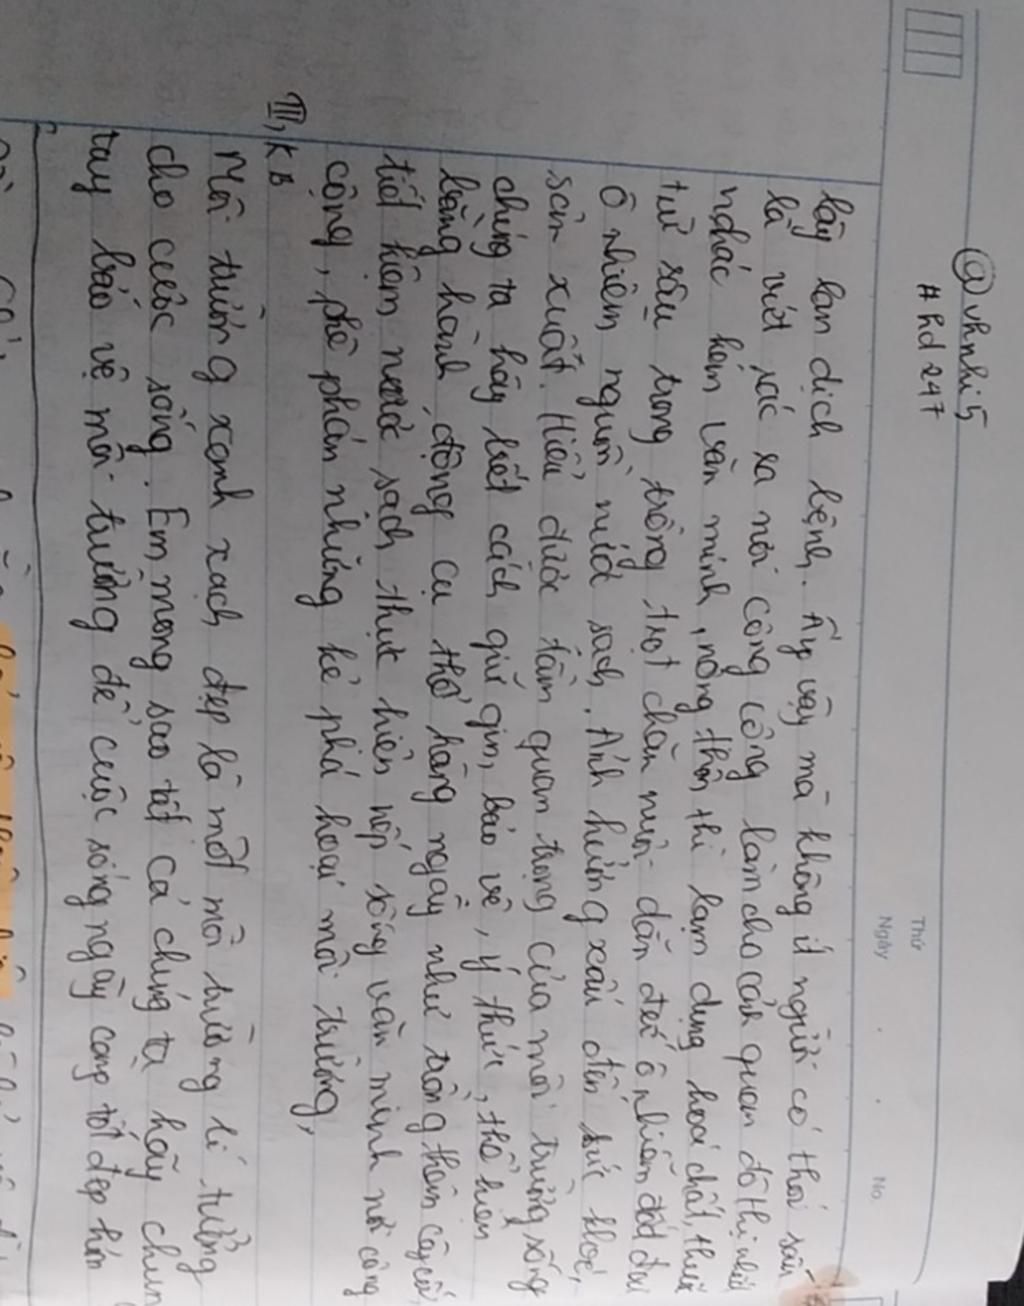 @vhnhi.5
#hd247
Thứ
Ngày
No.
lây lan dịch bệnh. Ấy vậy mà không ít người có thói xấu
là vứt rác ra nơi công cộng làm cho cảnh quan đô thị nhếch
nhác kém văn minh, nông thôn thì lạm dụng hoá chất, thuốc
trừ sâu trong trồng trọt chăn nuôi dẫn đến ô nhiễm đất đai
ô nhiễm nguồn nước sạch. Ảnh hưởng xấu đến sức khoẻ,
sản xuất. Hiểu được tầm quan trọng của môi trường sống
chúng ta hãy biết cách giữ gìn, bảo vệ, ý thức, thể hiện
bằng hành động cụ thể hằng ngày như trồng thêm cây cối,
tiết kiệm nước sạch, thực hiện nếp sống văn minh nơi công
cộng, phê phán những kẻ phá hoại môi trường,
III, KB
Môi trường xanh xạch đẹp là một môi trường lí tưởng
cho cuộc sống. Em mong sao tất cả chúng ta hãy chung
tay bảo vệ môi trường để cuộc sống ngày càng tốt đẹp hơn